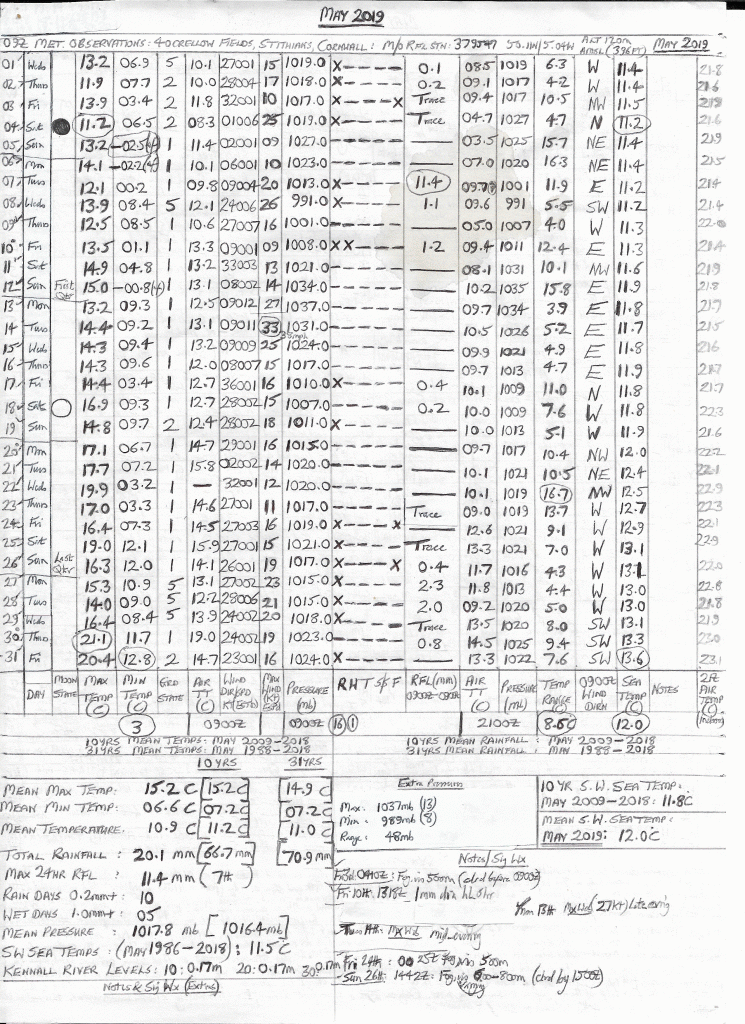 MAY 2019
09Z MET. OBSERVATIONS: 40 CRELLOW FIELDS, STITHIANS, CORNWALL: M/O RFL STN: 379547 50.1W/5.04W ALT 120m AMSL (396FT) MAY 2019
01 Weds 13.2 06.9 5 10.1 27001 15 1019.0 X - - - - 0.1 08.5 1019 6.3 W 11.4 21.8
02 Thurs 11.9 07.7 2 10.0 28004 17 1018.0 X - - - - 0.2 09.1 1017 4.2 W 11.4 21.6
03 Fri 13.9 03.4 2 11.8 32001 10 1017.0 X - - - X Trace 09.4 1017 10.5 NW 11.5 21.9
04 Sat 11.2 06.5 2 08.3 01006 25 1019.0 X - - - - Trace 04.7 1027 4.7 N 11.2 21.6
05 Sun 13.2 -02.5 1 11.4 02001 09 1027.0 - - - - - 03.5 1025 15.7 NE 11.4 21.9
06 Mon 14.1 -02.2 1 10.1 06001 10 1023.0 - - - - - 07.0 1020 16.3 NE 11.4 21.5
07 Tues 12.1 00.2 1 09.8 09004 20 1013.0 X - - - - 11.4 09.7 1001 11.9 E 11.2 21.4
08 Weds 13.9 08.4 5 12.1 24006 26 991.0 X - - - - 1.1 09.6 991 5.5 SW 11.2 21.4
09 Thurs 12.5 08.5 1 10.6 27007 16 1001.0 - - - - - 05.0 1007 4.0 W 11.3 22.0
10 Fri 13.5 01.1 1 13.3 09001 09 1008.0 X X - - - 1.2 09.4 1011 12.4 E 11.3 21.4
11 Sat 14.9 04.8 1 13.2 33003 13 1021.0 - - - - - 08.1 1031 10.1 NW 11.6 21.9
12 Sun First Qtr 15.0 -00.8 1 13.1 08002 14 1034.0 - - - - - 10.2 1035 15.8 E 11.9 21.8
13 Mon 13.2 09.3 1 12.5 09012 27 1037.0 - - - - - 09.7 1034 3.9 E 11.8 21.7
14 Tues 14.4 09.2 1 13.1 09011 33 1031.0 - - - - - 10.5 1026 5.2 E 11.7 21.5
15 Weds 14.3 09.4 1 13.2 09009 25 1024.0 - - - - - 09.9 1021 4.9 E 11.8 21.6
16 Thurs 14.3 09.6 1 12.0 08007 15 1017.0 - - - - - 09.7 1013 4.7 E 11.9 21.7
17 Fri 14.4 03.4 1 12.7 36001 16 1010.0 X - - - - 0.4 10.1 1009 11.0 N 11.8 21.7
18 Sat 16.9 09.3 1 12.7 28002 15 1007.0 - - - - - 0.2 10.0 1009 7.6 W 11.8 22.3
19 Sun 14.8 09.7 2 12.4 28002 18 1011.0 X - - - - 10.0 1013 5.1 W 11.9 21.6
20 Mon 17.1 06.7 1 14.7 29001 16 1015.0 - - - - - 09.7 1017 10.4 NW 12.0 22.2
21 Tues 17.7 07.2 1 15.8 02002 14 1020.0 - - - - - 10.1 1021 10.5 NE 12.4 22.1
22 Weds 19.9 03.2 1 — 32001 12 1020.0 - - - - - 10.1 1019 16.7 NW 12.5 22.9
23 Thurs 17.0 03.3 1 14.6 27001 11 1017.0 - - - - - Trace 09.0 1019 13.7 W 12.7 22.3
24 Fri 16.4 07.3 1 14.5 27003 16 1019.0 X - - - X 12.6 1021 9.1 W 12.9 22.1
25 Sat 19.0 12.1 1 15.9 27001 15 1021.0 X - - - - Trace 13.3 1021 7.0 W 13.1 22.9
26 Sun Last Qtr 16.3 12.0 1 14.1 26001 19 1017.0 X - - - X 0.4 11.7 1016 4.3 W 13.1 22.0
27 Mon 15.3 10.9 5 13.1 27002 23 1015.0 X - - - - 2.3 11.8 1013 4.4 W 13.0 22.8
28 Tues 14.0 09.0 5 12.2 28006 21 1015.0 X - - - - 2.0 09.2 1020 5.0 W 13.0 21.8
29 Weds 16.4 08.4 5 13.9 24002 20 1018.0 X - - - - Trace 13.5 1020 8.0 SW 13.1 21.9
30 Thurs 21.1 11.7 1 19.0 24002 19 1023.0 - - - - - 0.8 14.5 1025 9.4 SW 13.3 23.0
31 Fri 20.4 12.8 2 14.7 23001 16 1024.0 X - - - - 13.3 1022 7.6 SW 13.6 23.1
DAY MOON STATE MAX TEMP (C) MIN TEMP (C) GRD STATE AIR TT (C) WIND DIR/SPD MAX WIND (KT) PRESSURE (mb) R H T S/K F RFL (MM) 0900Z-0900Z AIR TT (C) PRESSURE (mb) TEMP RANGE (C) 0900Z WIND DIRN SEA TEMP (C) NOTES AIR TEMP (C)
3 0900Z 0900Z 16 1 2100Z 8.6C 12.0
10YRS MEAN TEMPS: MAY 2009-2018 10YRS MEAN RAINFALL: MAY 2009-2018
31YRS MEAN TEMPS: MAY 1988-2018 31YRS MEAN RAINFALL: MAY 1988-2018
10YRS 31YRS
MEAN MAX TEMP: 15.2 C [15.2 C] [14.9 C]
MEAN MIN TEMP: 06.6 C [07.2 C] [07.2 C]
MEAN TEMPERATURE: 10.9 C [11.2 C] [11.0 C]
TOTAL RAINFALL: 20.1 mm [66.7mm] [70.9mm]
MAX 24HR RFL: 11.4 mm (7th)
RAIN DAYS 0.2mm+: 10
WET DAYS 1.0mm+: 05
MEAN PRESSURE: 1017.8 mb [1016.4mb]
SW SEA TEMPS: (MAY 1986-2018): 11.5C
KENNALL RIVER LEVELS: 10: 0.17m 20: 0.17m 30: 0.17m
Notes & Sig Wx (Extras)
Extra Pressure
Max: 1037mb (13)
Min: 989mb (8)
Range: 48mb
10 YR S.W. SEA TEMP:
MAY 2009-2018: 11.8C
MEAN S.W. SEA TEMP:
MAY 2019: 12.0C
Notes/Sig Wx
0410Z: Fog vis 500m (clrd before 0900Z)
Fri 10th 1318Z 1mm dia hl
Mon 13th Max Wd (27kt) late evening
Tues 14th: Max Wd mid evening
Fri 24th: Fog vis 500m
Sun 26th: 1442Z: Fog vis 600-800m (clrd by 1500Z)